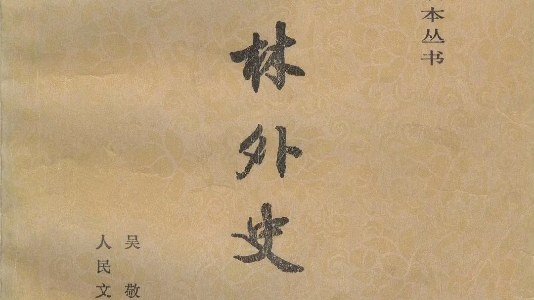 本丛书
林外史
吴敬
人民文